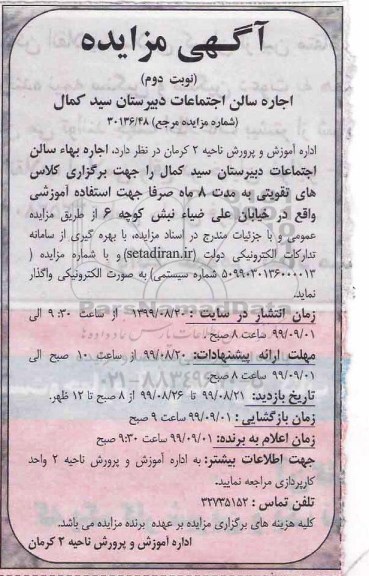 آگهی مزایده
(نوبت دوم)
اجاره سالن اجتماعات دبیرستان سید کمال
(شماره مزایده مرجع) ۳۰۱۳۶/۴۸
اداره آموزش و پرورش ناحیه ۲ کرمان در نظر دارد، اجاره بهاء سالن
اجتماعات دبیرستان سید کمال را جهت برگزاری کلاس
های تقویتی به مدت ۸ ماه صرفا جهت استفاده آموزشی
واقع در خیابان علی ضیاء نبش کوچه ۶ از طریق مزایده
عمومی و با جزئیات مندرج در اسناد مزایده، با بهره گیری از سامانه
تدارکات الکترونیکی دولت (setadiran.ir) و با شماره مزایده (
۵۰۹۹۰۳۰۱۳۶۰۰۰۰۱۳ شماره سیستمی) به صورت الکترونیکی واگذار
نماید.
زمان انتشار در سایت : ۱۳۹۹/۰۸/۲۰ از ساعت ۹:۳۰ الی
۹۹/۰۹/۰۱ ساعت ۸ صبح .
مهلت ارائه پیشنهادات: ۹۹/۰۸/۲۰ از ساعت ۱۰ صبح الی
۹۹/۰۹/۰۱ ساعت ۸ صبح
تاریخ بازدید: ۹۹/۰۸/۲۱ تا ۹۹/۰۸/۲۶ از ۸ صبح تا ۱۲ ظهر.
زمان بازگشایی : ۹۹/۰۹/۰۱ ساعت ۹ صبح
زمان اعلام به برنده: ۹۹/۰۹/۰۱ ساعت ۹:۳۰ صبح
جهت اطلاعات بیشتر: به اداره آموزش و پرورش ناحیه ۲ واحد
کارپردازی مراجعه نمایید.
تلفن تماس : ۳۲۷۳۵۱۵۲
کلیه هزینه های برگزاری مزایده بر عهده برنده مزایده می باشد.
اداره آموزش و پرورش ناحیه ۲ کرمان